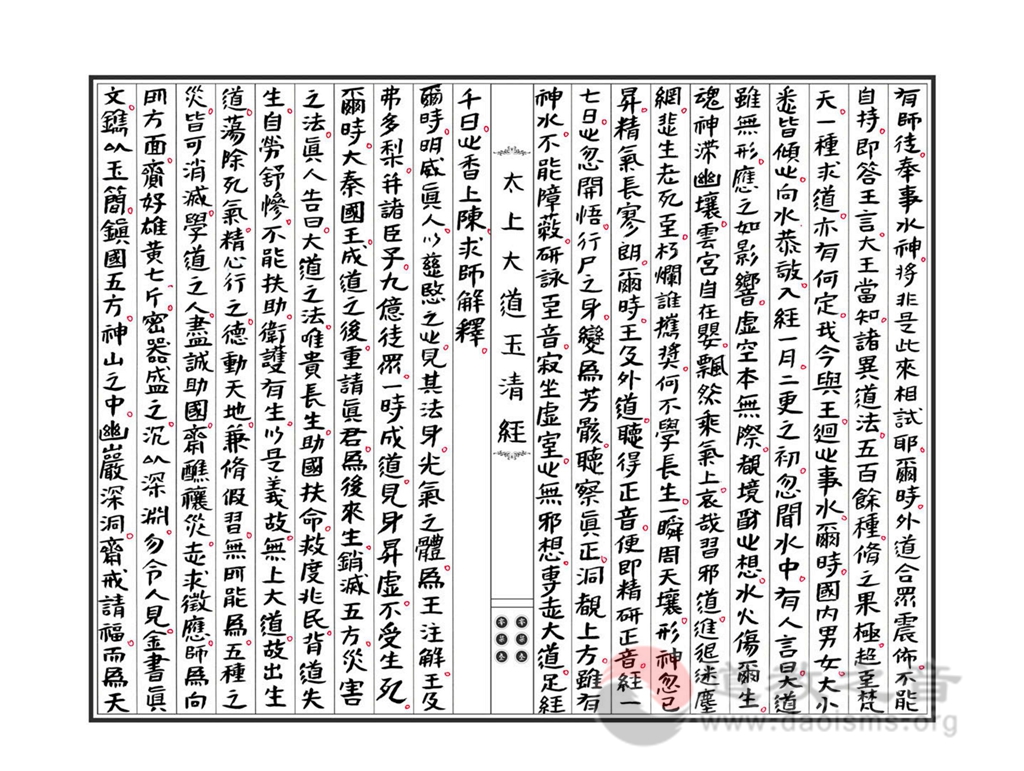 有師徒奉事水神将非是此來相試耶爾時外道合眾震佈不能
自持即答王言大王當知諸異道法五百餘種脩之果極超至梵
天一種求道亦有何定我今與王迴此事水爾時國内男女大小
悉皆傾此向水恭敬入經一月二更之初忽聞水中有人言曰大道
雖無形應之如影響虛空本無際覩境尌此想水火傷爾生
魂神滞幽壤雲宮自在嬰飄然乘氣上哀哉習邪道進退迷塵
網悲生老死至朽爛誰攜獎何不學長生一瞬周天壤形神忽已
昇精氣長寥朗爾時王及外道聽得正音便即精研正音經一
七日此忽開悟行尸之身變為芳骸聽察真正洞覩上方雖有
神水不能障蔽研詠至音寂坐虛室此無邪想專志大道足經
太上大道玉清經
千日此香上陳求師解釋
爾時明威真人以慈愍之此見其法身光氣之體為王注解王及
弗多梨并諸臣子九億徒眾一時成道見身昇虛不受生死
爾時大秦國王成道之後重請真君為後來生銷滅五方災害
之法真人告曰大道之法唯貴長生助國扶命救度兆民背道失
生自勞舒慘不能扶助衛護有生以是義故無上大道故出生
道蕩除死氣精心行之德動天地兼脩假習無所能為五種之
災皆可消滅學道之人盡誠助國齋醮禳災志求徵應師為向
所方面齋好雄黄七斤密器盛之沉以深淵勿令人見金書真
文鐫以玉簡鎮國五方神山之中幽巖深洞齋戒請福而為天
道教之音
www.daoisms.org